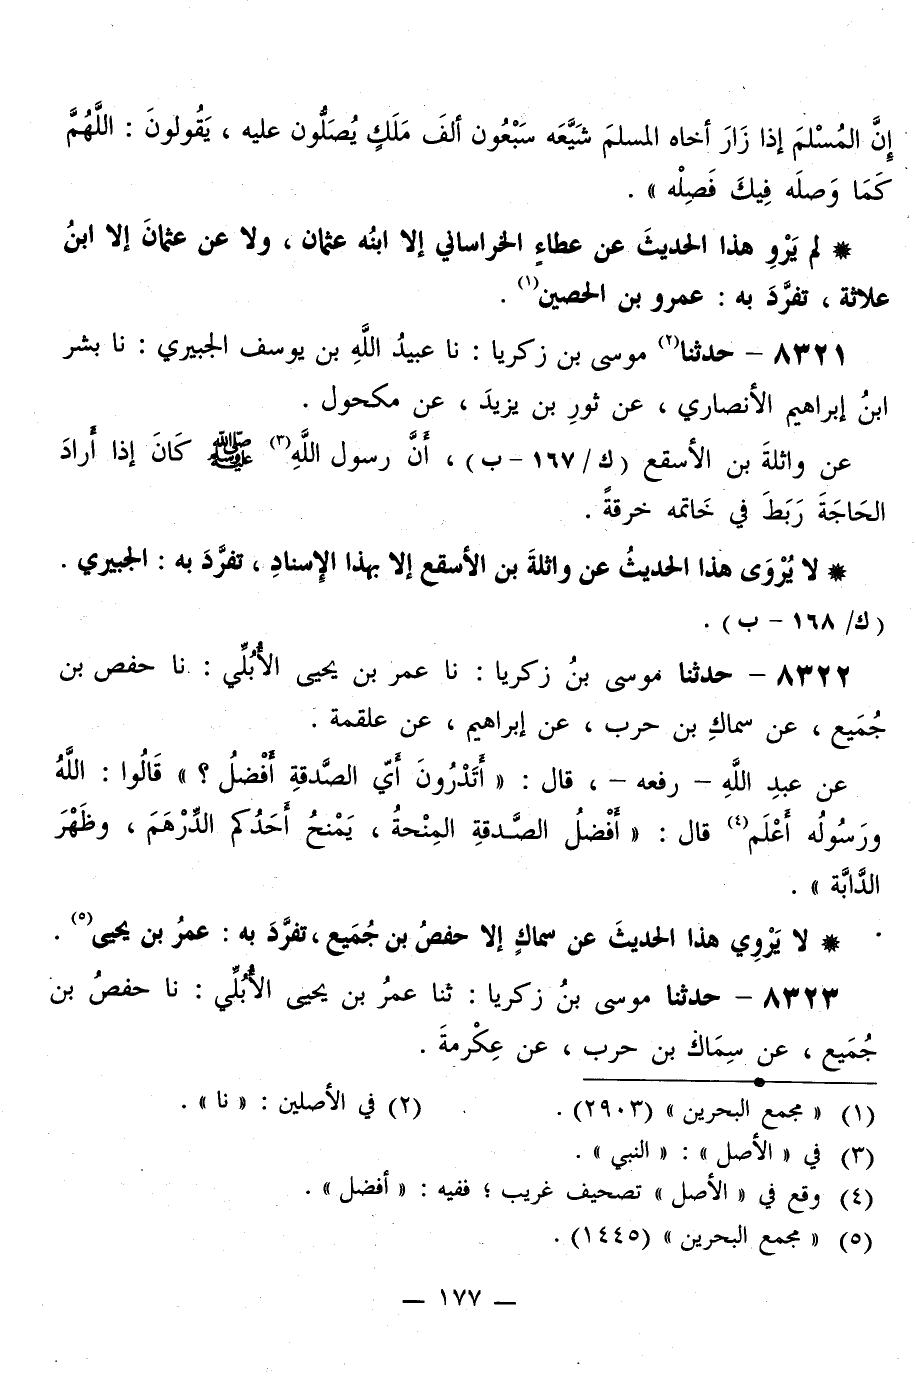 إِنَّ المُسْلمَ إذا زَارَ أخاه المسلمَ شَيَّعَه سَبْعُون ألفَ مَلَكٍ يُصَلُّون عليه ، يَقُولونَ : اللَّهُمَّ
كَمَا وَصلَه فِيكَ فَصِلْه » .
* لم يَرْوِ هذا الحديثَ عن عطاءٍ الخراساني إلا ابنُه عثمان ، ولا عن عثمانَ إلا ابنُ
علاثة ، تفرَّدَ به : عمرو بن الحصين(١) .
٨٣٢١ – حدثنا(٢) موسى بن زكريا : نا عبيدُ اللَّهِ بن يوسف الجبيري : نا بشر
ابنُ إبراهيم الأنصاري ، عن ثورِ بن يزيدَ ، عن مكحول .
عن واثلةَ بن الأسقع (ك/١٦٧ – ب) ، أَنَّ رسول اللَّهِ(٣) ﷺ كَانَ إذا أَرادَ
الحَاجَةَ رَبَطَ في خَاتمه خرقةً .
* لا يُرْوَى هذا الحديثُ عن واثلةَ بن الأسقع إلا بهذا الإِسنادِ ، تفرَّدَ به : الجبيري .
(ك/١٦٨ – ب) .
٨٣٢٢ – حدثنا موسى بنُ زكريا : نا عمر بن يحيى الأُبُلِّي : نا حفص بن
جُمَيع ، عن سماكِ بن حرب ، عن إبراهيم ، عن علقمة .
عن عبدِ اللَّهِ – رفعه – ، قال : « أَتَدْرُونَ أَيّ الصَّدقةِ أَفْضلُ ؟ » قَالُوا : اللَّهُ
ورَسُولُه أَعْلَم(٤) قال : « أَفْضلُ الصَّدقةِ المِنْحةُ ، يَمْنحُ أَحَدُكم الدِّرْهَمَ ، وظَهْرَ
الدَّابَّة » .
* لا يَرْوِي هذا الحديثَ عن سماكٍ إلا حفصُ بن جُمَيع ، تفرَّدَ به : عمرُ بن يحيى(٥) .
٨٣٢٣ – حدثنا موسى بنُ زكريا : ثنا عمرُ بن يحيى الأُبُلِّي : نا حفصُ بن
جُمَيع ، عن سِمَاك بن حرب ، عن عِكْرمةَ .
(١) « مجمع البحرين » (٢٩٠٣) . (٢) في الأصلين : « نا » .
(٣) في « الأصل » : « النبي » .
(٤) وقع في « الأصل » تصحيف غريب ؛ ففيه : « أفضل » .
(٥) « مجمع البحرين » (١٤٤٥) .
— ١٧٧ —